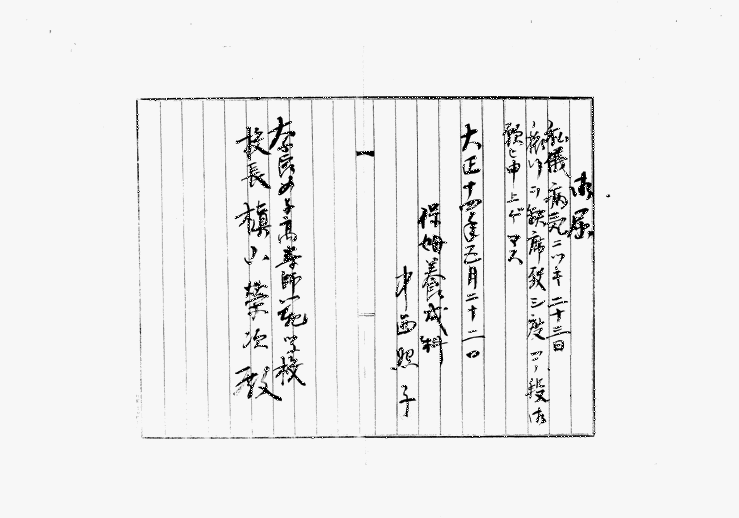 御届
私儀病気ニツキ二十三日
ヨリ缺席致シ度コノ段御
願ヒ申上ゲマス
大正十四年五月二十二日
保姆養成科
中西照子
奈良女子高等師範学校
校長槇山榮次殿